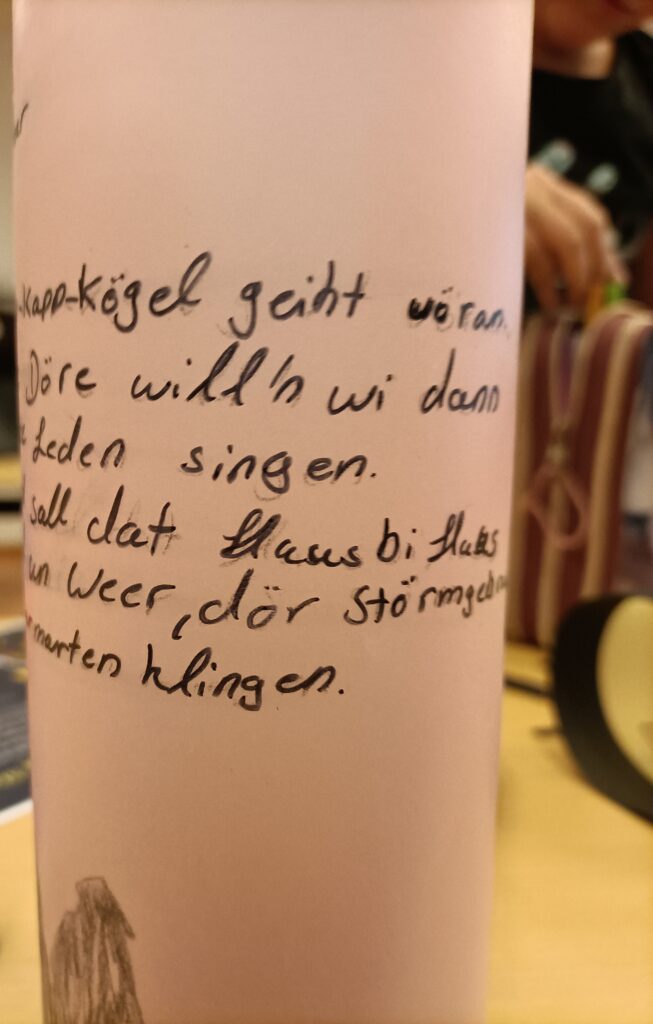 Kapp-Kögel geiht vöran.
Döre will'n wi dann
Leden singen.
sall dat Haus bi Haus
un Weer, dör Störmgebru
marten klingen.